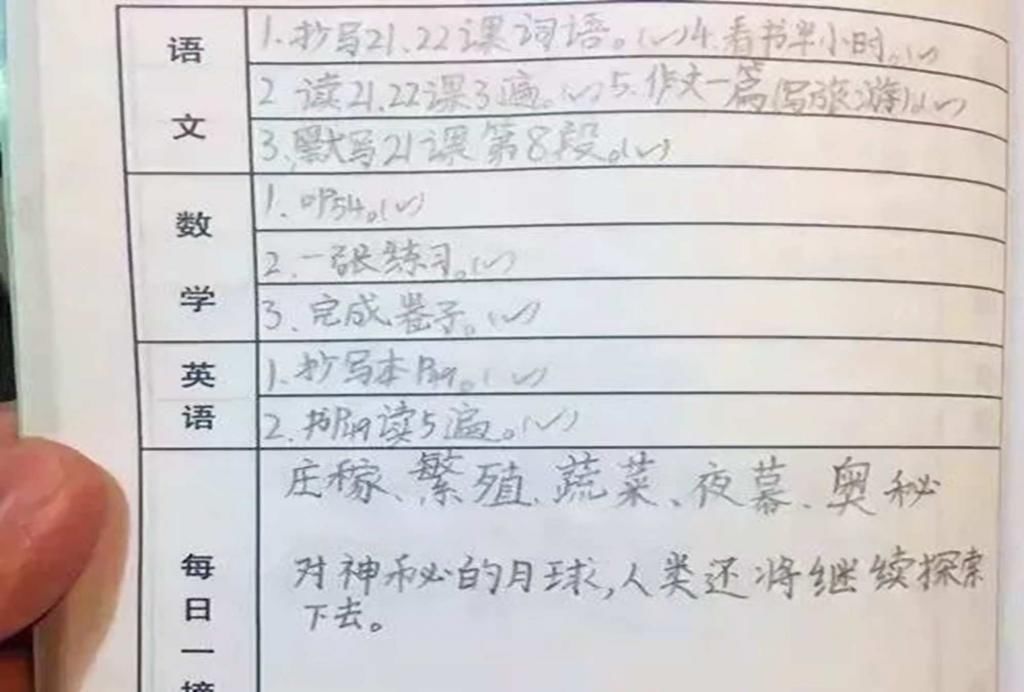 语文
1.抄写21.22课词语。(✓)4.看书半小时。(✓)
2 读21.22课3遍。(✓)5.作文一篇(写旅游)。(✓)
3.默写21课第8段。(✓)
数学
1. 口P54。(✓)
2.一张练习。(✓)
3.完成卷子。(✓)
英语
1.抄写本P49。(✓)
2.书P49读5遍。(✓)
每日一摘
庄稼、繁殖、蔬菜、夜幕、奥秘
对神秘的月球,人类还将继续探索
下去。